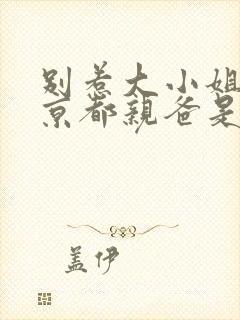 别惹大小姐
京都亲爸是
盖伊